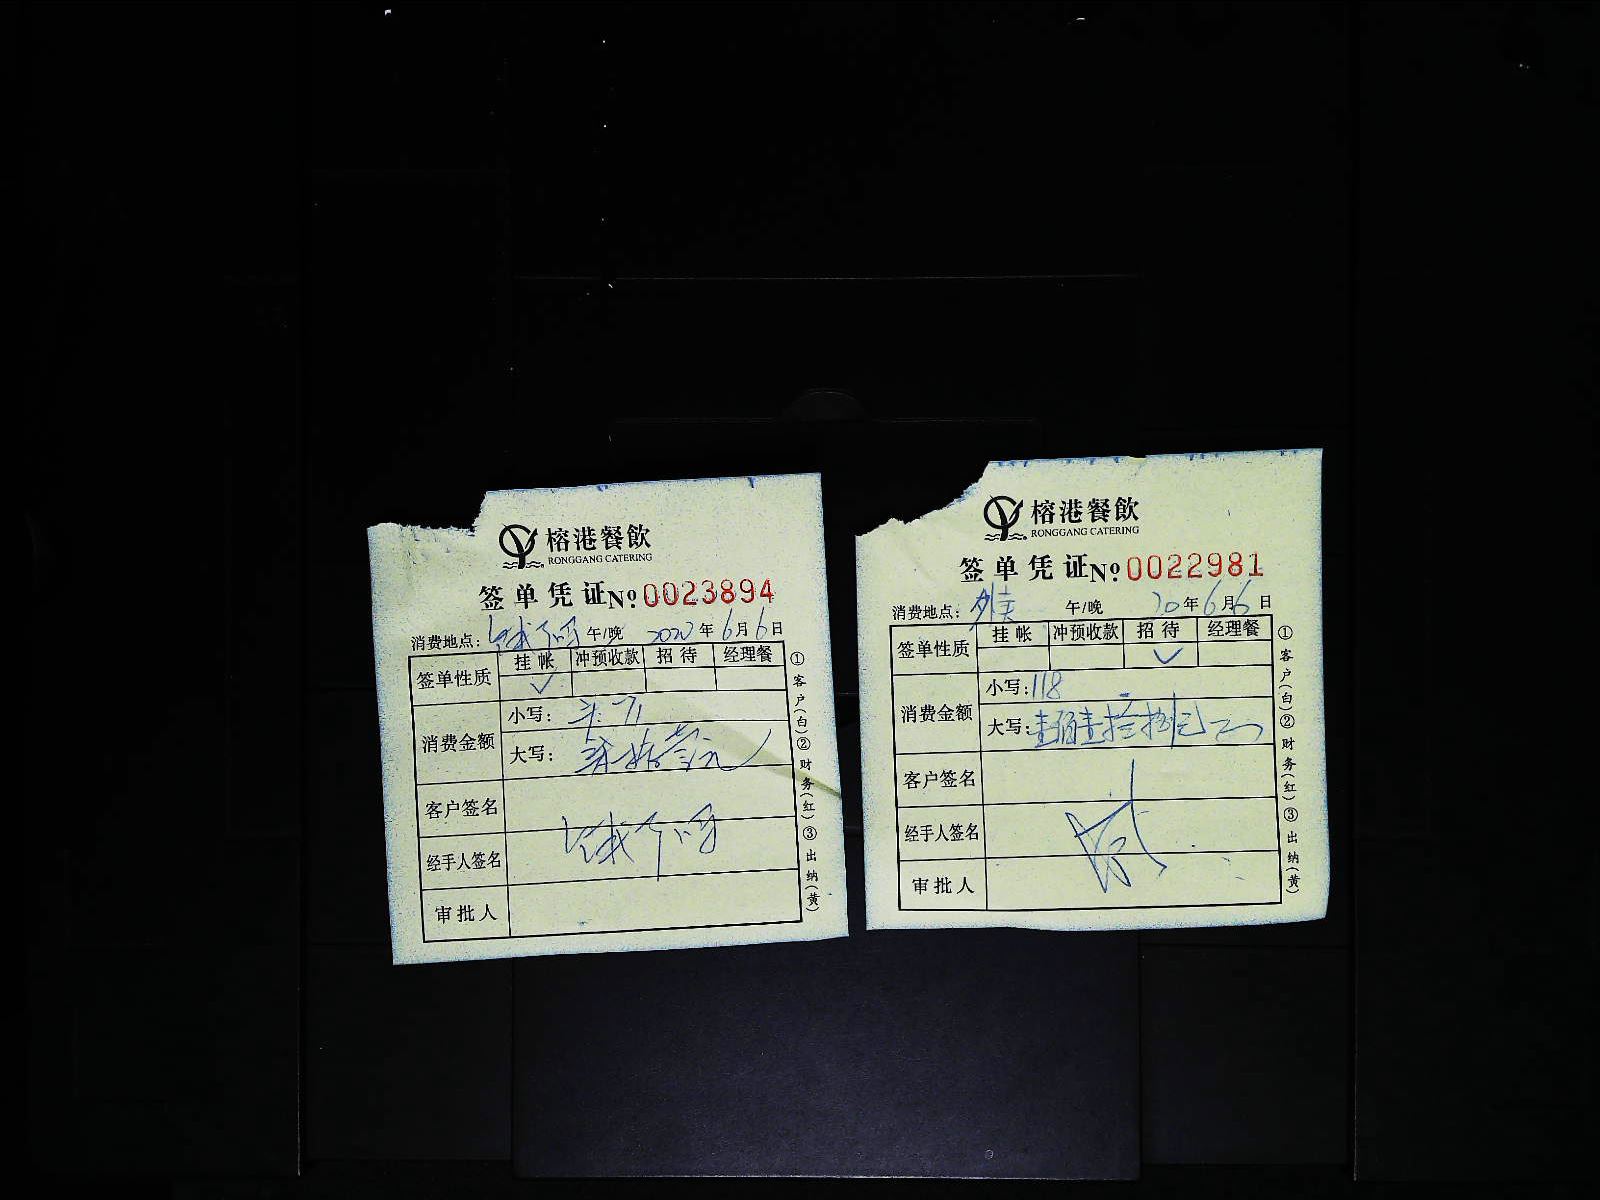 榕港餐飲
RONGGANG CATERING
签单凭证 No 0023894
消费地点: 午/晚 2020年6月6日
签单性质 挂帐 冲预收款 招待 经理餐
✓
消费金额 小写:
大写:
客户签名
经手人签名
审批人
①客户(白)②财务(红)③出纳(黄)
榕港餐飲
RONGGANG CATERING
签单凭证 No 0022981
消费地点: 午/晚 20年6月6日
签单性质 挂帐 冲预收款 招待 经理餐
✓
消费金额 小写:118
大写:壹佰壹拾捌元
客户签名
经手人签名
审批人
①客户(白)②财务(红)③出纳(黄)